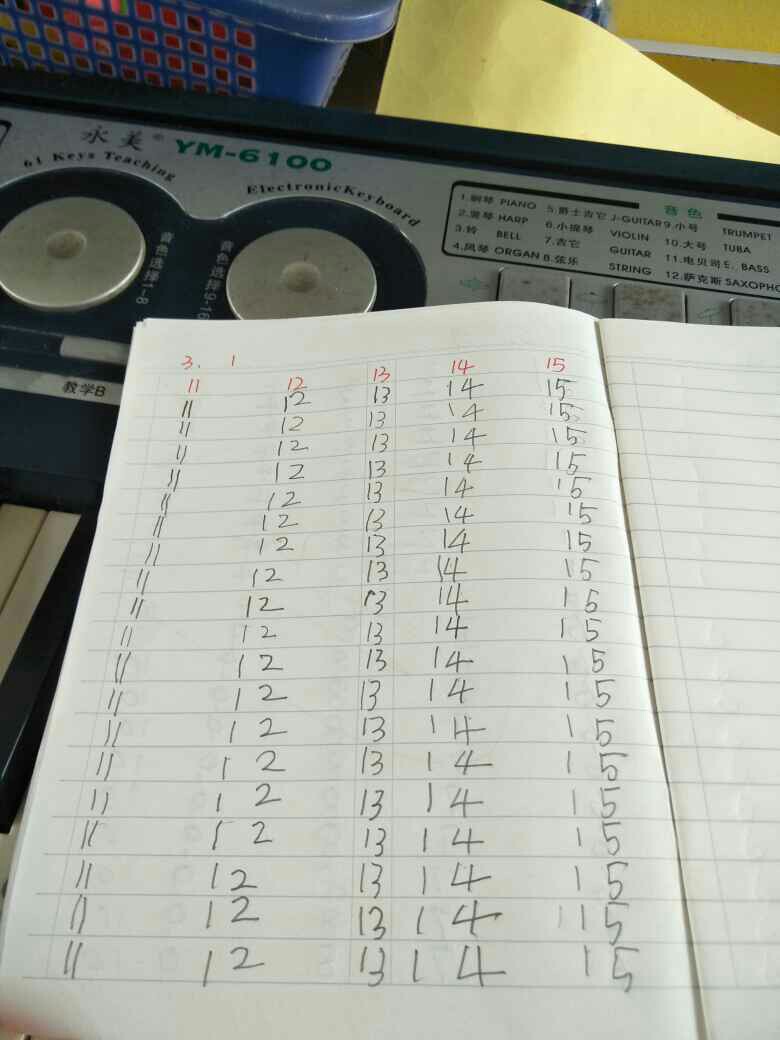 永美® YM-6100
61 Keys Teaching
ElectronicKeyboard
音色
1.钢琴 PIANO 5.爵士吉它 J-GUITAR 9.小号 TRUMPET
2.竖琴 HARP 6.小提琴 VIOLIN 10.大号 TUBA
3.铃 BELL 7.吉它 GUITAR 11.电贝司 E. BASS
4.风琴 ORGAN 8.弦乐 STRING 12.萨克斯
音色选择1-8
音色选择9-16
教学B
3. 1
11 12 13 14 15
11 12 13 14 15
11 12 13 14 15
11 12 13 14 15
11 12 13 14 15
11 12 13 14 15
11 12 13 14 15
11 12 13 14 15
11 12 13 14 15
11 12 13 14 15
11 12 13 14 15
11 12 13 14 15
11 12 13 14 15
11 12 13 14 15
11 12 13 14 15
11 12 13 14 15
11 12 13 14 15
11 12 13 14 15
11 12 13 14 115
11 12 13 14 15